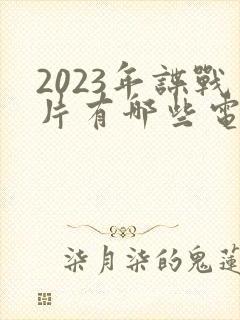 2023年諜戰
片有哪些電
柒月柒的鬼蓮